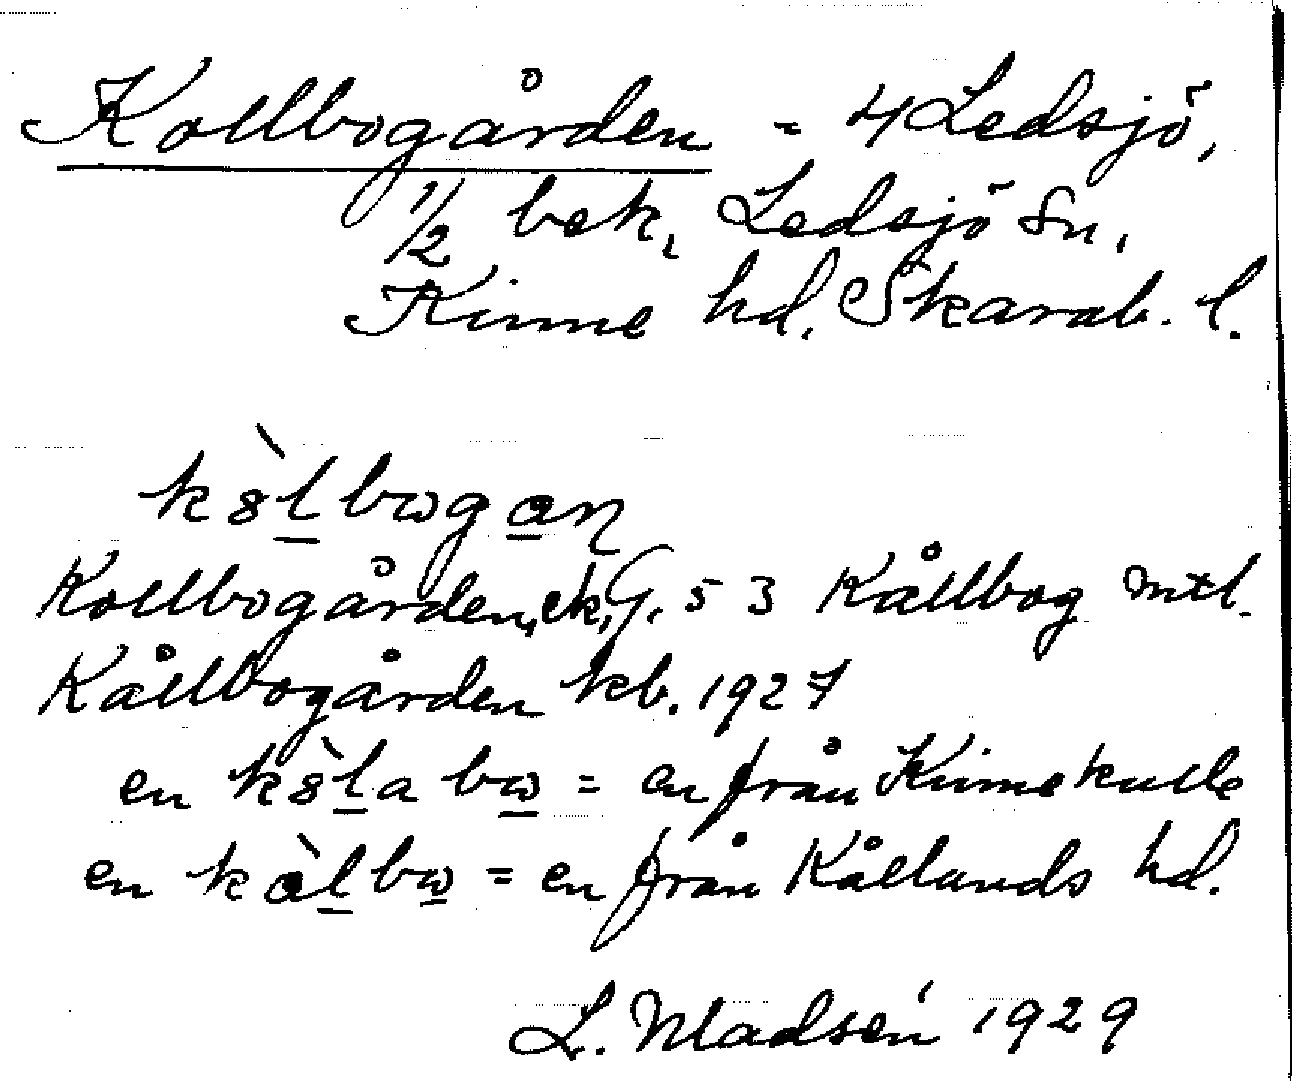 Kollbogården = 4 Ledsjö,
1/2 bek. Ledsjö Sn,
Kinne hd. Skarab. l.
k8̀lbωgan
Kollbogården, ek, G. 53 Kållbog mtl.
Kållbogården kb. 1927
en k8̀la bω = en från Kinnekulle
en kàlbω = en från Kållands hd.
L. Madsén 1929